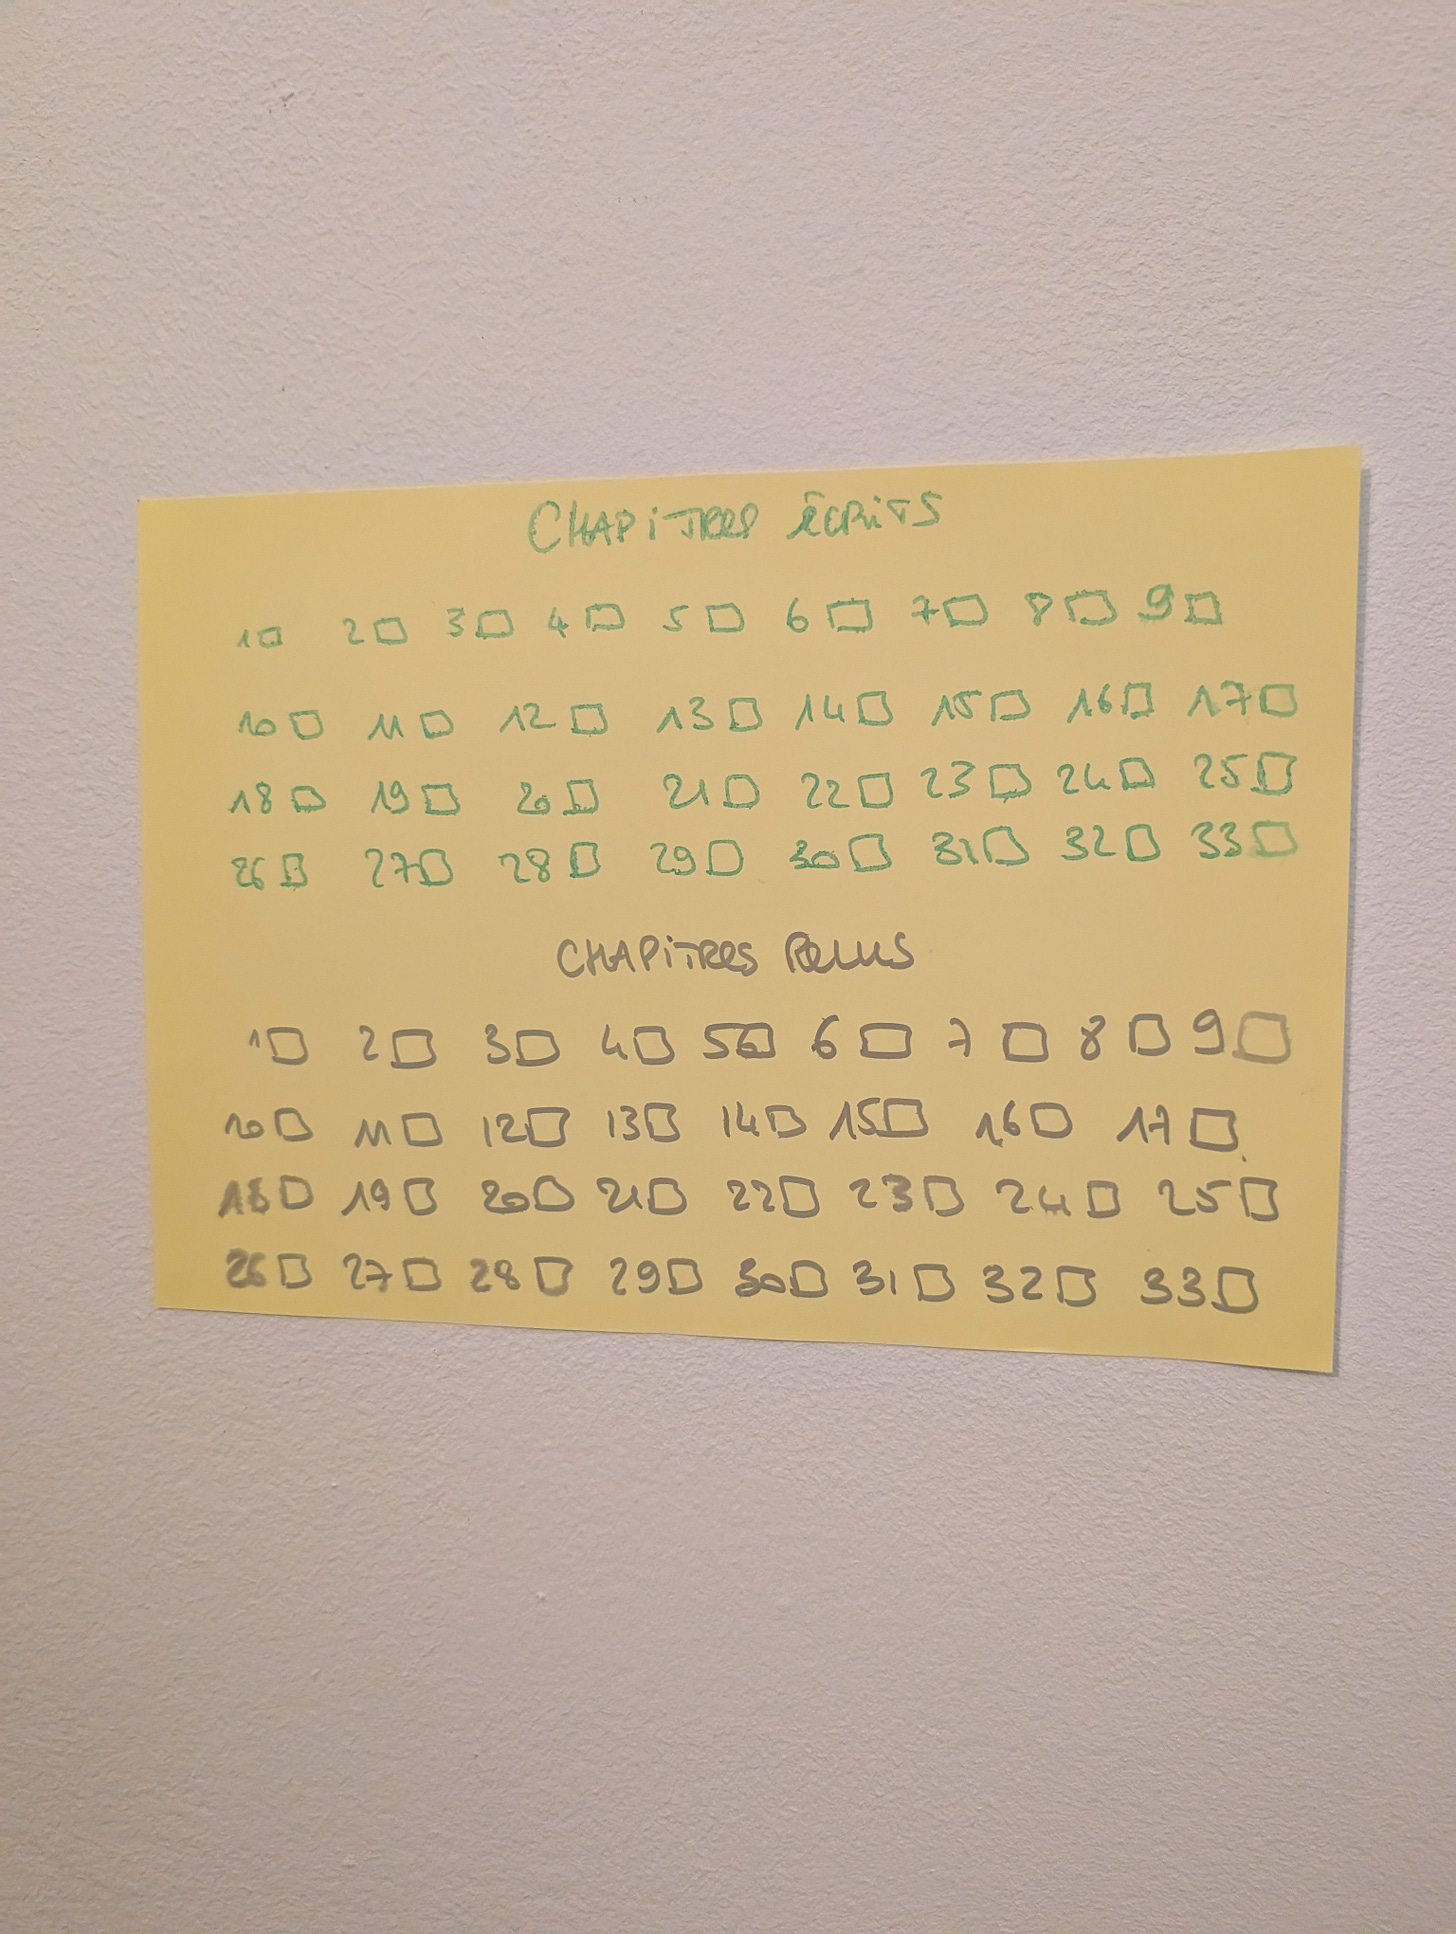 CHAPITRES ÉCRITS
1☐ 2☐ 3☐ 4☐ 5☐ 6☐ 7☐ 8☐ 9☐
10☐ 11☐ 12☐ 13☐ 14☐ 15☐ 16☐ 17☐
18☐ 19☐ 20☐ 21☐ 22☐ 23☐ 24☐ 25☐
26☐ 27☐ 28☐ 29☐ 30☐ 31☐ 32☐ 33☐
CHAPITRES RELUS
1☐ 2☐ 3☐ 4☐ 5☐ 6☐ 7☐ 8☐ 9☐
10☐ 11☐ 12☐ 13☐ 14☐ 15☐ 16☐ 17☐
18☐ 19☐ 20☐ 21☐ 22☐ 23☐ 24☐ 25☐
26☐ 27☐ 28☐ 29☐ 30☐ 31☐ 32☐ 33☐